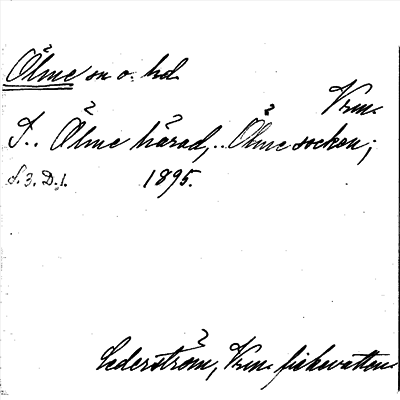 Ölme sn o. hd.
Vrm.
I.. Ölme härad,.. Ölme socken;
S. 3. D. 1. 1895.
Cederström, Vrm. fiskevatten